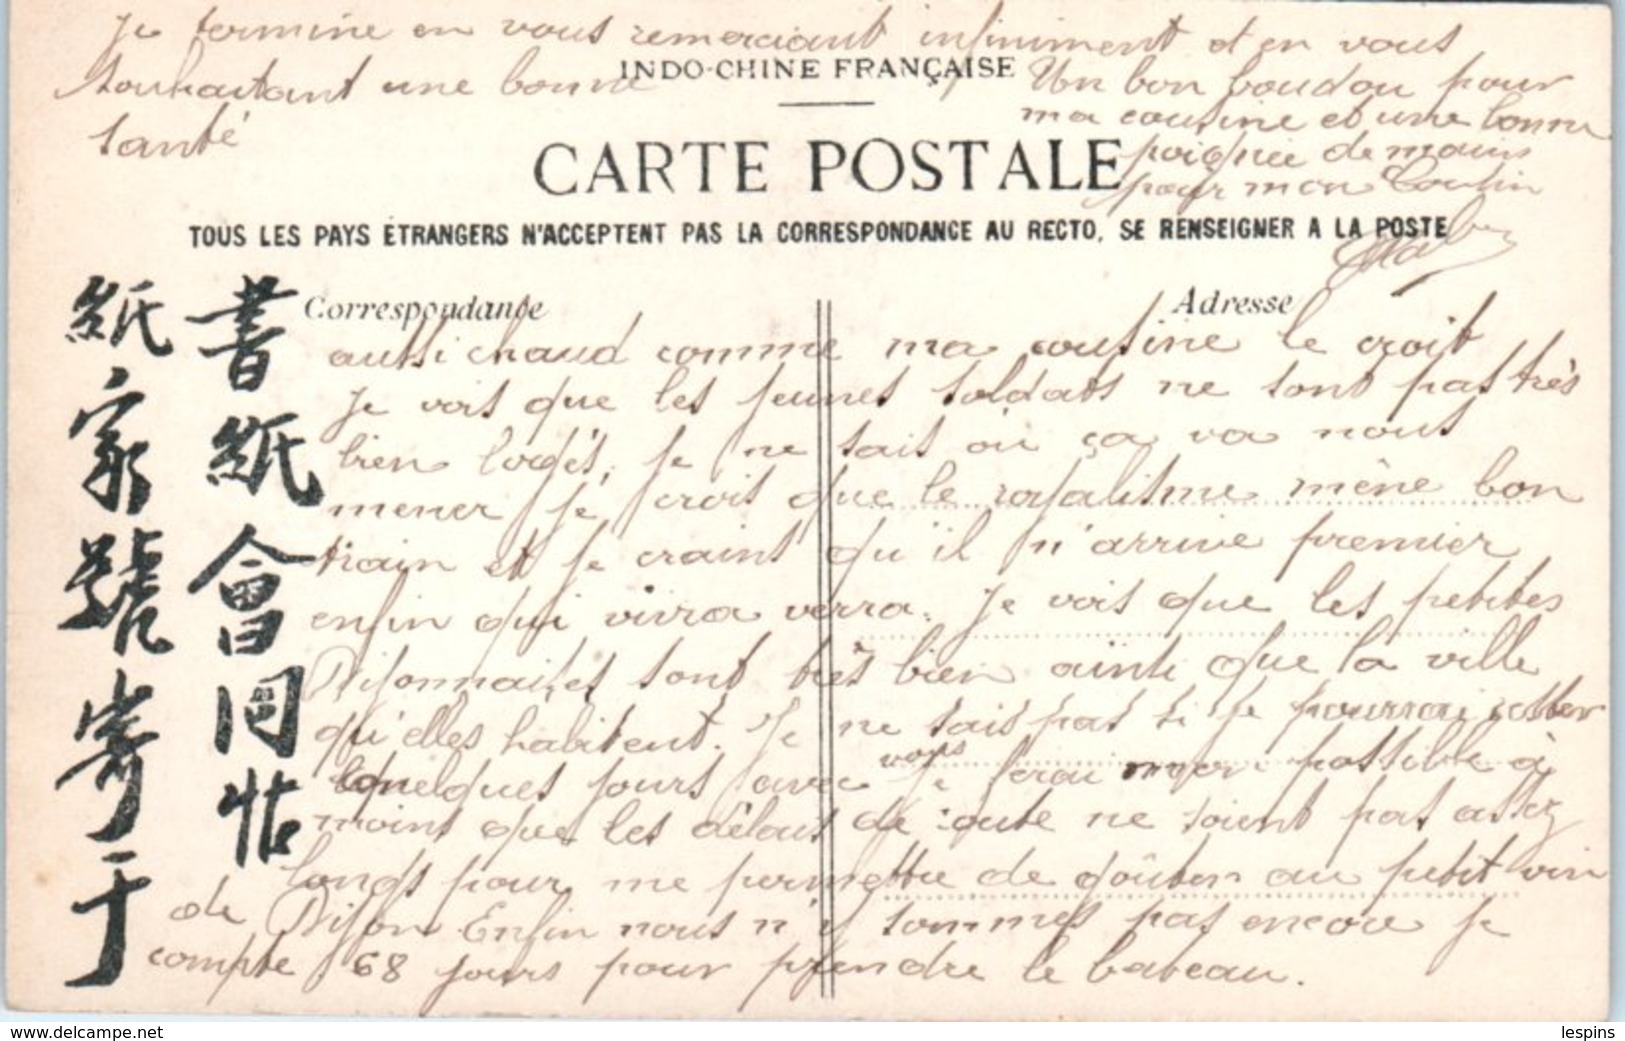 Je termine en vous remerciant infiniment et en vous
souhaitant une bonne
santé
INDO-CHINE FRANÇAISE
Un bon boudou pour
ma cousine et une bonne
poignée de mains
pour mon Cousin
CARTE POSTALE
TOUS LES PAYS ÉTRANGERS N'ACCEPTENT PAS LA CORRESPONDANCE AU RECTO, SE RENSEIGNER A LA POSTE
Correspondance
Adresse
書紙會同帖
紙家號寄于
aussi chaud comme ma cousine le croit
Je vois que les jeunes soldats ne sont pas très
bien logés, je ne sait où ça va nous
mener je crois que le royalisme mène bon
train et je craint qu'il n'arrive premier
enfin qui vivra verra. Je vois que les petites
Dijonnaises sont très bien ainsi que la ville
qu'elles habitent. Je ne sais pas si je pourrai rester
quelques jours avec vous je ferai mon possible à
moins que les délais de route ne soient pas assez
longs pour me permettre de goûter au petit vin
de Dijon Enfin nous n'y sommes pas encore je
compte 68 jours pour prendre le bateau.
www.delcampe.net
lespins